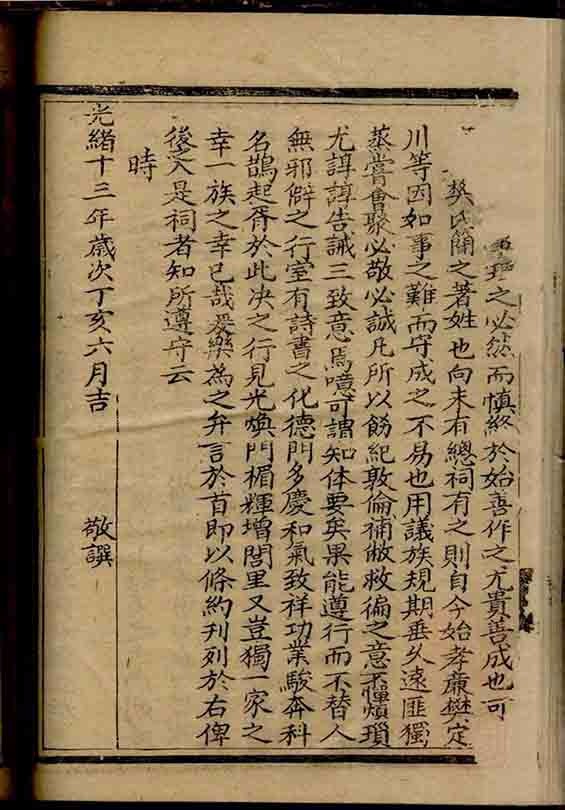 理之必然而慎終於始善作之尤貴善成也可
樊氏簡之著姓也向未有總祠有之則自今始孝廉樊定
川等因如事之難而守成之不易也用議族規期垂久遠匪獨
蒸嘗會聚必敬必誠凡所以飭紀敦倫補敝救偏之意不憚煩瑣
尤諄諄告誡三致意焉噫可謂知体要矣果能遵行而不替人
無邪僻之行室有詩書之化德門多慶和氣致祥功業駿奔科
名鵲起胥於此决之行見光煥門楣輝增閭里又豈獨一家之
幸一族之幸已哉爰樂為之弁言於首即以條約刊列於右俾
後入是祠者知所遵守云
時
光緒十三年歲次丁亥六月吉
敬譔